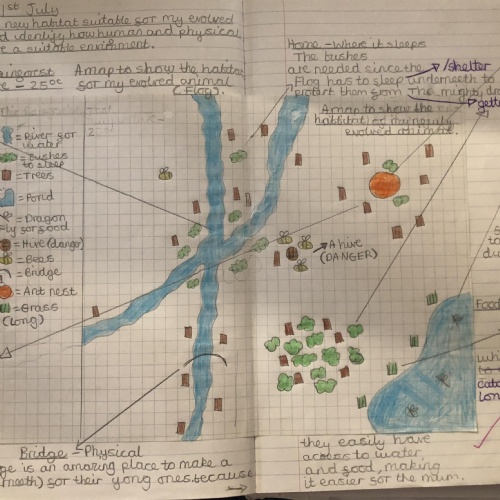 1st July
new habitat suitable sor my evolved
d identisy how human and physical
e a suitable enviroment.
aingorst
e - 25°c
A map to show the habitat
sor my evolved animal
(Flog)
= River sor
water
= Bushes
to sleep
= Trees
= Pond
= Dragon
ly sor sood
= Hive (danger)
= Bees
= Bridge
= Ant nest
= Grass
(Long)
Home - Where it sleeps
The bushes
are needed since the /shelter
Flog has to sleep underneeth to
protect them srom The mighty
A map to show the
habbitat os
evolved animat.
A hive
(DANGER)
Food
whi
to
cato
Lon
Bridge - Physical
ge is an amazing place to make a
neeth) sor their yong ones because
they easily have
access to water,
and good, making
it easier sor the mum.